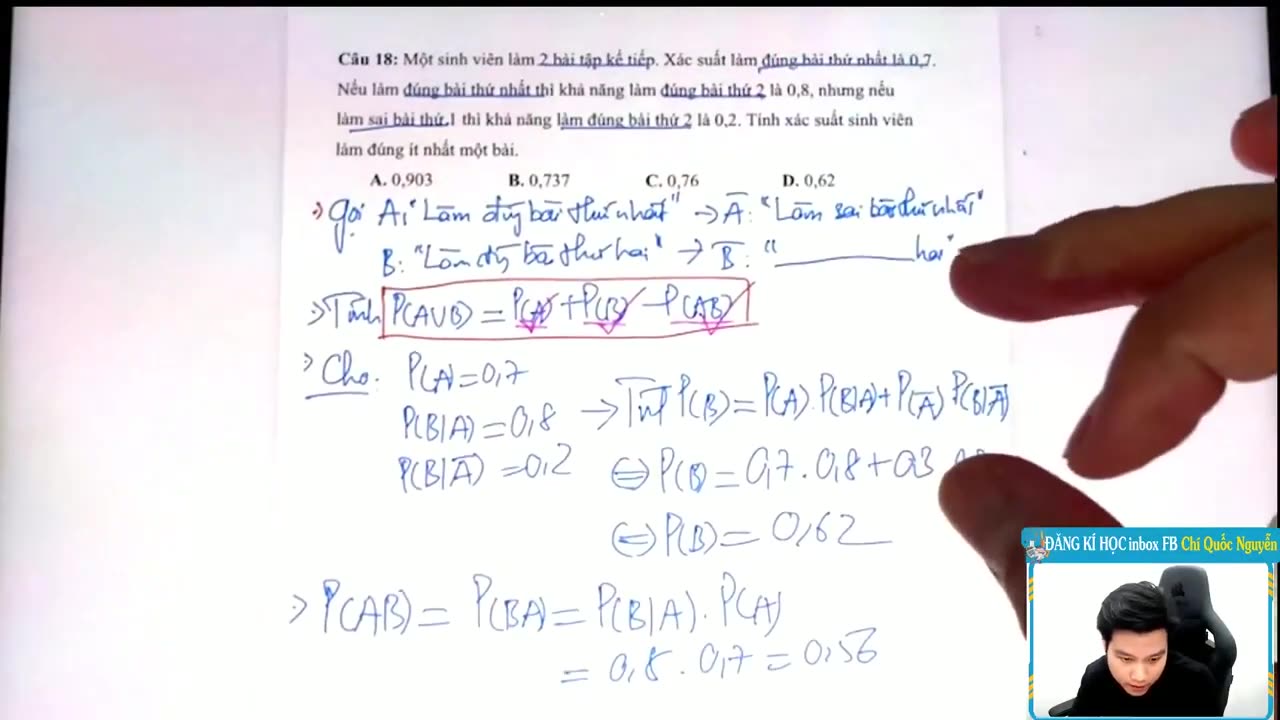 Câu 18: Một sinh viên làm 2 bài tập kế tiếp. Xác suất làm đúng bài thứ nhất là 0,7.
Nếu làm đúng bài thứ nhất thì khả năng làm đúng bài thứ 2 là 0,8, nhưng nếu
làm sai bài thứ 1 thì khả năng làm đúng bài thứ 2 là 0,2. Tính xác suất sinh viên
làm đúng ít nhất một bài.
A. 0,903 B. 0,737 C. 0,76 D. 0,62
Gọi A: "Làm đúng bài thứ nhất" → A̅: "Làm sai bài thứ nhất"
B: "Làm đúng bài thứ hai" → B̅: "________ hai"
Tính P(A∪B) = P(A) + P(B) - P(AB)
Cho: P(A) = 0,7
P(B|A) = 0,8 → Tính P(B) = P(A).P(B|A) + P(A̅) P(B|A̅)
P(B|A̅) = 0,2 ⇔ P(B) = 0,7.0,8 + 0,3
⇔ P(B) = 0,62
P(AB) = P(BA) = P(B|A).P(A)
= 0,8.0,7 = 0,56
ĐĂNG KÍ HỌC inbox FB Chí Quốc Nguyễn